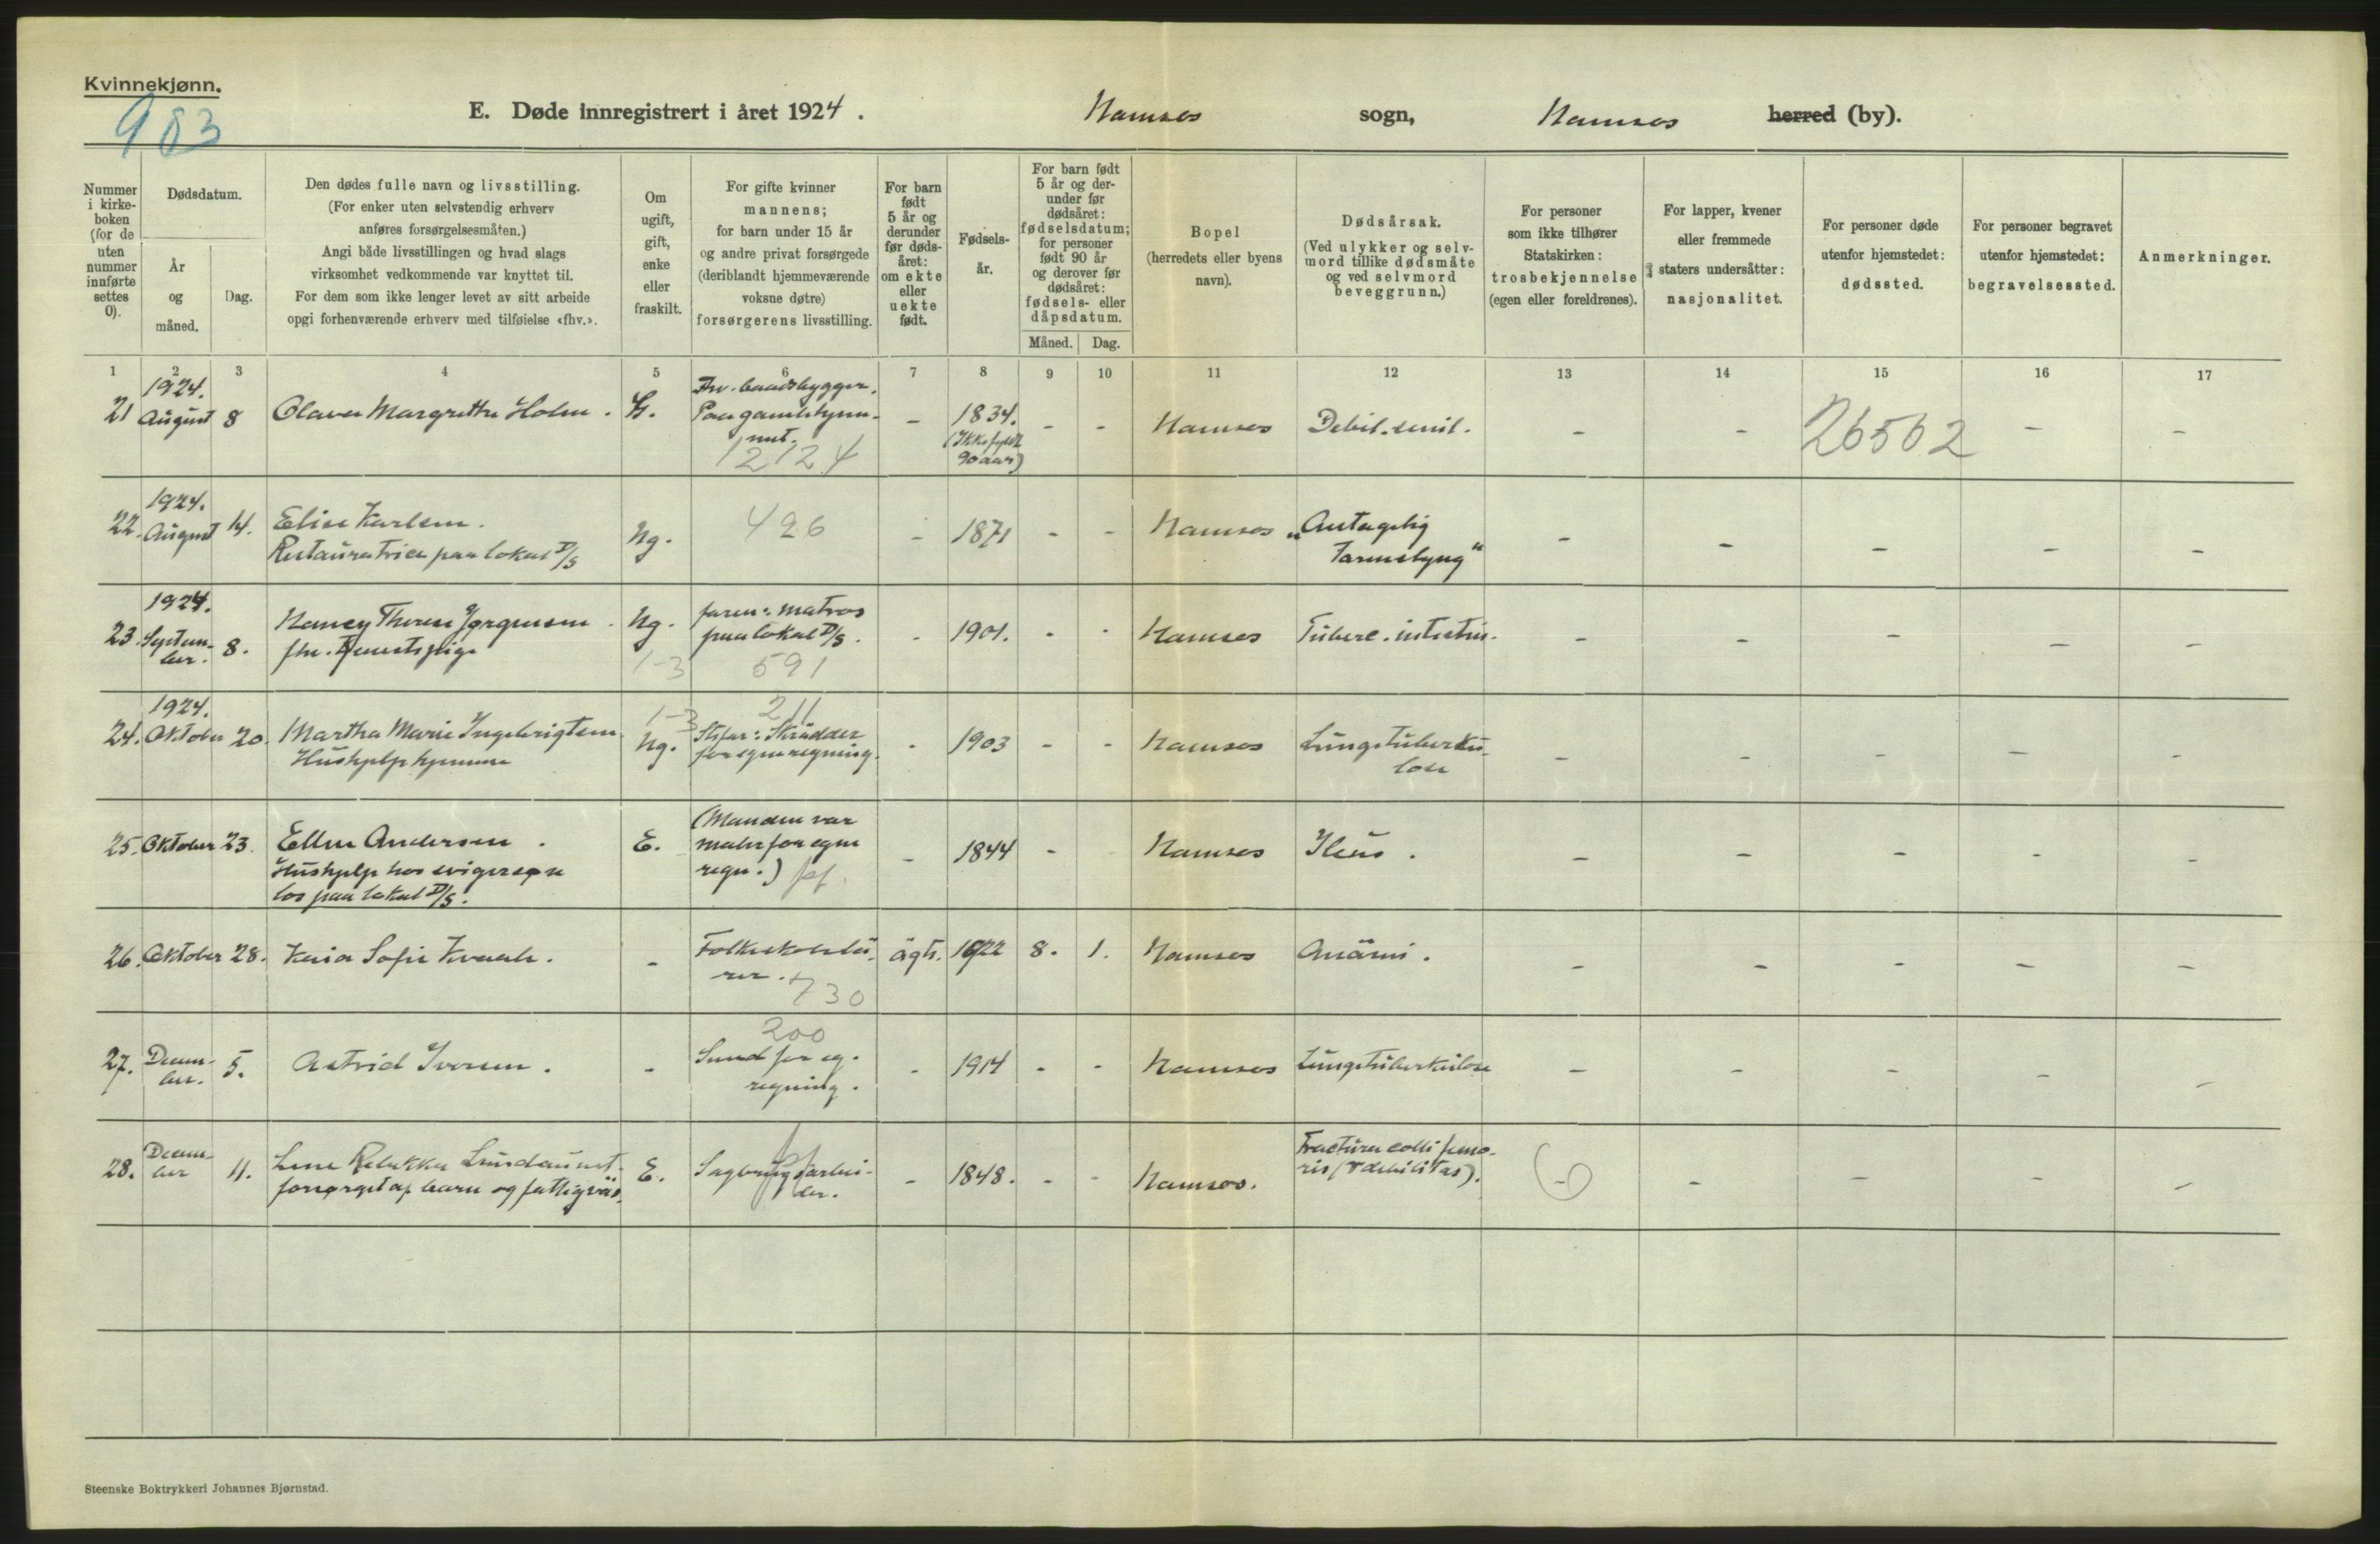 Kvinnekjønn.
983
E. Døde innregistrert i året 1924. Namsos sogn, Namsos herred (by).
Nummer i kirkeboken (for de uten nummer innførte settes 0).
Dødsdatum.
År og måned.
Dag.
Den dødes fulle navn og livsstilling.
(For enker uten selvstendig erhverv
anføres forsørgelsesmåten.)
Angi både livsstillingen og hvad slags
virksomhet vedkommende var knyttet til.
For dem som ikke lenger levet av sitt arbeide
opgi forhenværende erhverv med tilføielse «fhv.».
Om ugift, gift, enke eller fraskilt.
For gifte kvinner
mannens;
for barn under 15 år
og andre privat forsørgede
(deriblandt hjemmeværende
voksne døtre)
forsørgerens livsstilling.
For barn født 5 år og derunder før dødsåret: om ekte eller uekte født.
Fødselsår.
For barn født 5 år og derunder før dødsåret: fødselsdatum; for personer født 90 år og derover før dødsåret: fødsels- eller dåpsdatum.
Måned. Dag.
Bopel
(herredets eller byens
navn).
Dødsårsak.
(Ved ulykker og selvmord tillike dødsmåte og ved selvmord beveggrunn.)
For personer
som ikke tilhører
Statskirken:
trosbekjennelse
(egen eller foreldrenes).
For lapper, kvener
eller fremmede
staters undersåtter:
nasjonalitet.
For personer døde
utenfor hjemstedet:
dødssted.
For personer begravet
utenfor hjemstedet:
begravelsessted.
Anmerkninger.
1 2 3 4 5 6 7 8 9 10 11 12 13 14 15 16 17
21 1924. August 8 Olava Margrethe Holm. G. Fhv. baadbygger. Paa gamlehjemmet. 12124 - 1834. (Ikke fyldt 90 aar) - - Namsos Debil. senil. - - 26562 - -
22. 1924. August 14. Elise Karlsen. Restauratrice paa lokal D/S Ug. 426 - 1871 - - Namsos "Antagelig Tarmslyng" - - - - -
23. 1924. September. 8. Nancy Therese Jørgensen fhv. tjenestepige Ug. 1-3 faren: matros paa lokal D/S. 591 - 1901. - - Namsos Tuberc. intestin. - - - - -
24. 1924. Oktober 20. Martha Marie Ingebrigtsen. Hushjelp hjemme 1-3 Ug. 211 Stefar: Skrædder for egen regning. - 1903 - - Namsos Lungetuberkulose - - - - -
25. Oktober 23. Ellen Andersen. Hushjelp hos svigersøn los paa lokal D/S. E. (Manden var maler for egen regn.) - 1844 - Namsos Ileus. - - - - -
26. Oktober 28. Kaia Sofie Kvaale. - Folkeskolelærer. 730 ägte. 1922 8. 1. Namsos Anämi. - - - - -
27. December. 5. Astrid Iversen. - 200 Smed for eg. regning. - 1914 - - Namsos Lungetuberkulose - - - - -
28. December 11. Lene Rebekka Lindaunet. forsørget af barn og fattigväs. E. Sagbrugsarbeider. - 1848. - - Namsos. Fractura colli femoris (debilitas). - - - - -
Steenske Boktrykkeri Johannes Bjørnstad.